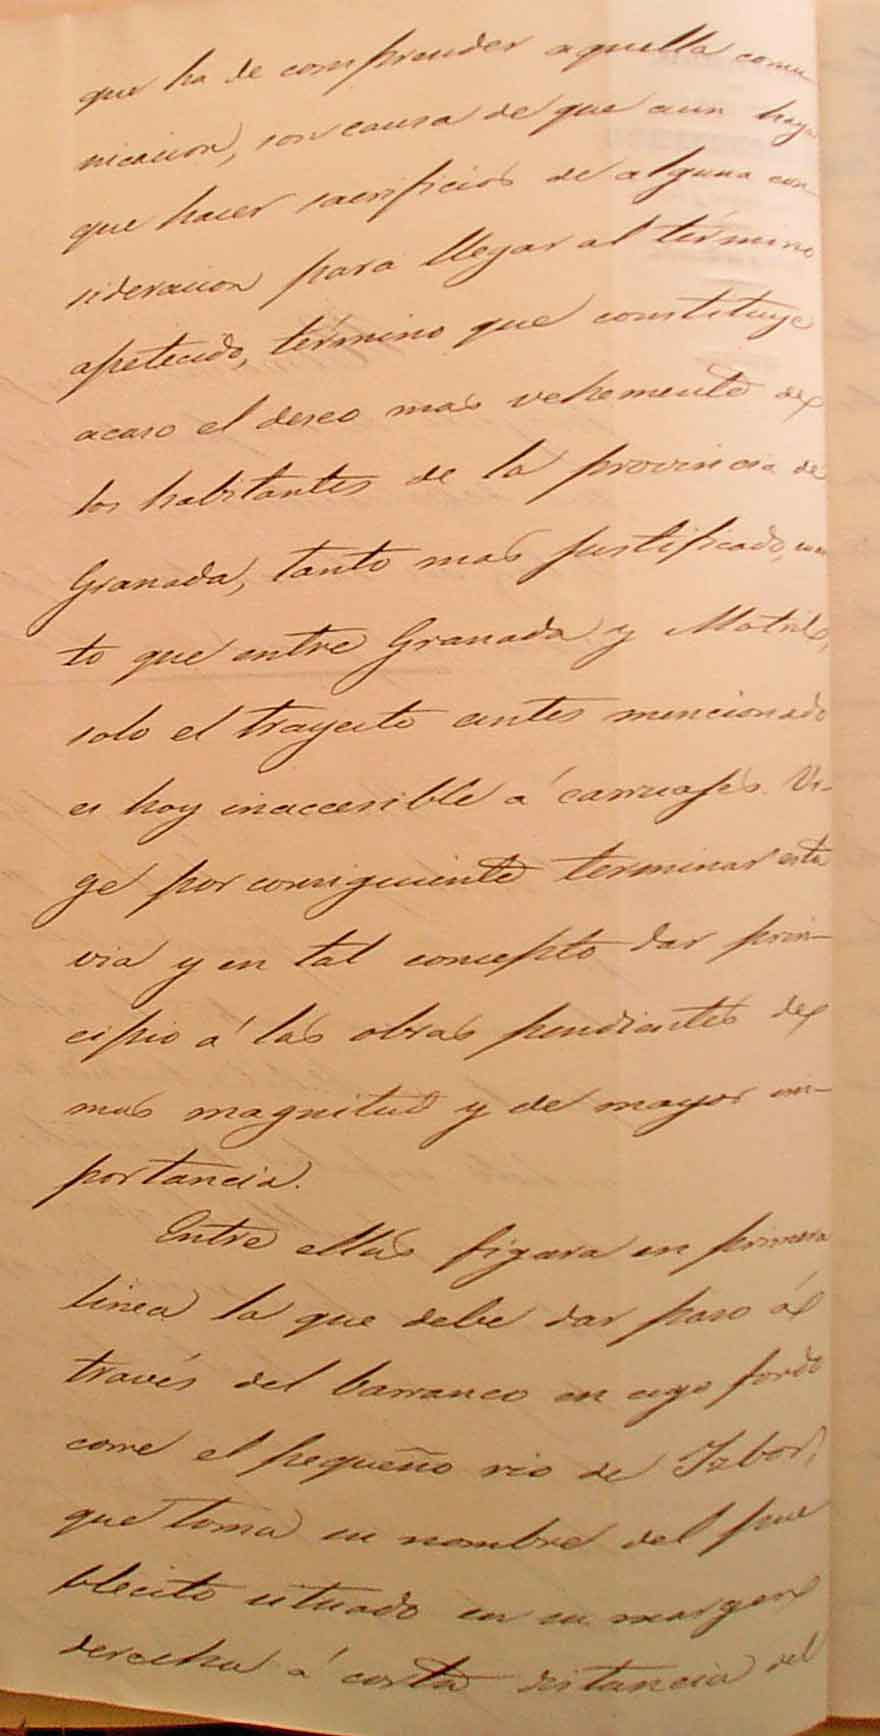 que ha de comprender aquella comu
nicacion, son causa de que aun haya
que hacer sacrificios de alguna con-
sideracion para llegar al término
apetecido, término que constituye
acaso el deseo mas vehemente de
los habitantes de la provincia de
Granada, tanto mas justificado, cuan
to que entre Granada y Motril,
solo el trayecto antes mencionado
es hoy inaccesible á carruajes. Ur-
ge por consiguiente terminar esta
via y en tal concepto dar prin-
cipio á las obras pendientes de
mas magnitud y de mayor im-
portancia.
Entre ellas figura en primera
linea la que debe dar paso á
través del barranco en cuyo fondo
corre el pequeño rio de Izbor,
que toma su nombre del pue
blecito situado en su margen
derecha á corta distancia del